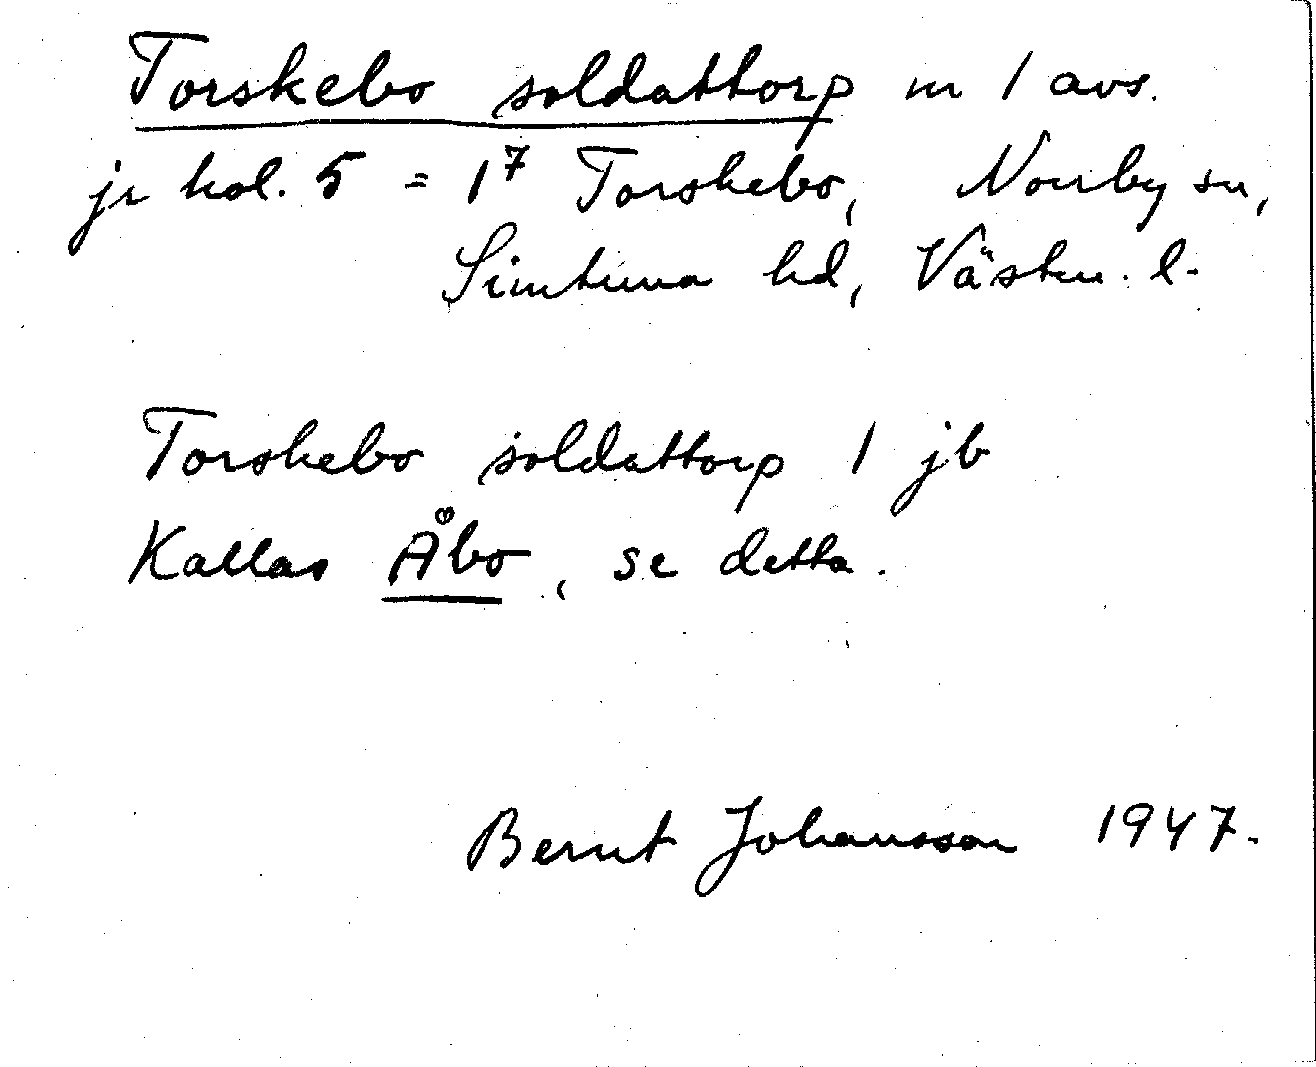 Torskebo soldattorp m 1 avs.
jr kol. 5 = 1⁷ Torskebo, Norrby sn,
Simtuna hd, Västm. l.
Torskebo soldattorp 1 jb
Kallas Åbo, se detta.
Bernt Johansson 1947.